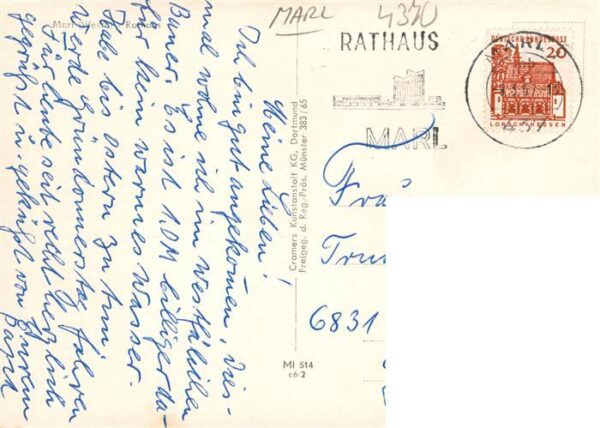 Marl (Westf.) Rathaus
MARL 4370
RATHAUS
MARL
MARL
DEUTSCHE BUNDESPOST
20
LORSCH/HESSEN
Meine Lieben!
Ich bin gut angekommen, dies-
mal wohne ich im Westfälischen
Es ist 1.DM billiger da-
für kein warmes Wasser.
Habe bis Ostern zu tun
werde Gründonnerstag fahren
Für heute seid recht herzlich
gegrüßt u. geküßt von Eurem
Cramers Kunstanstalt KG, Dortmund
Freigeg. d. Reg.-Präs. Münster 383/65
MI 514
c6-2
6831